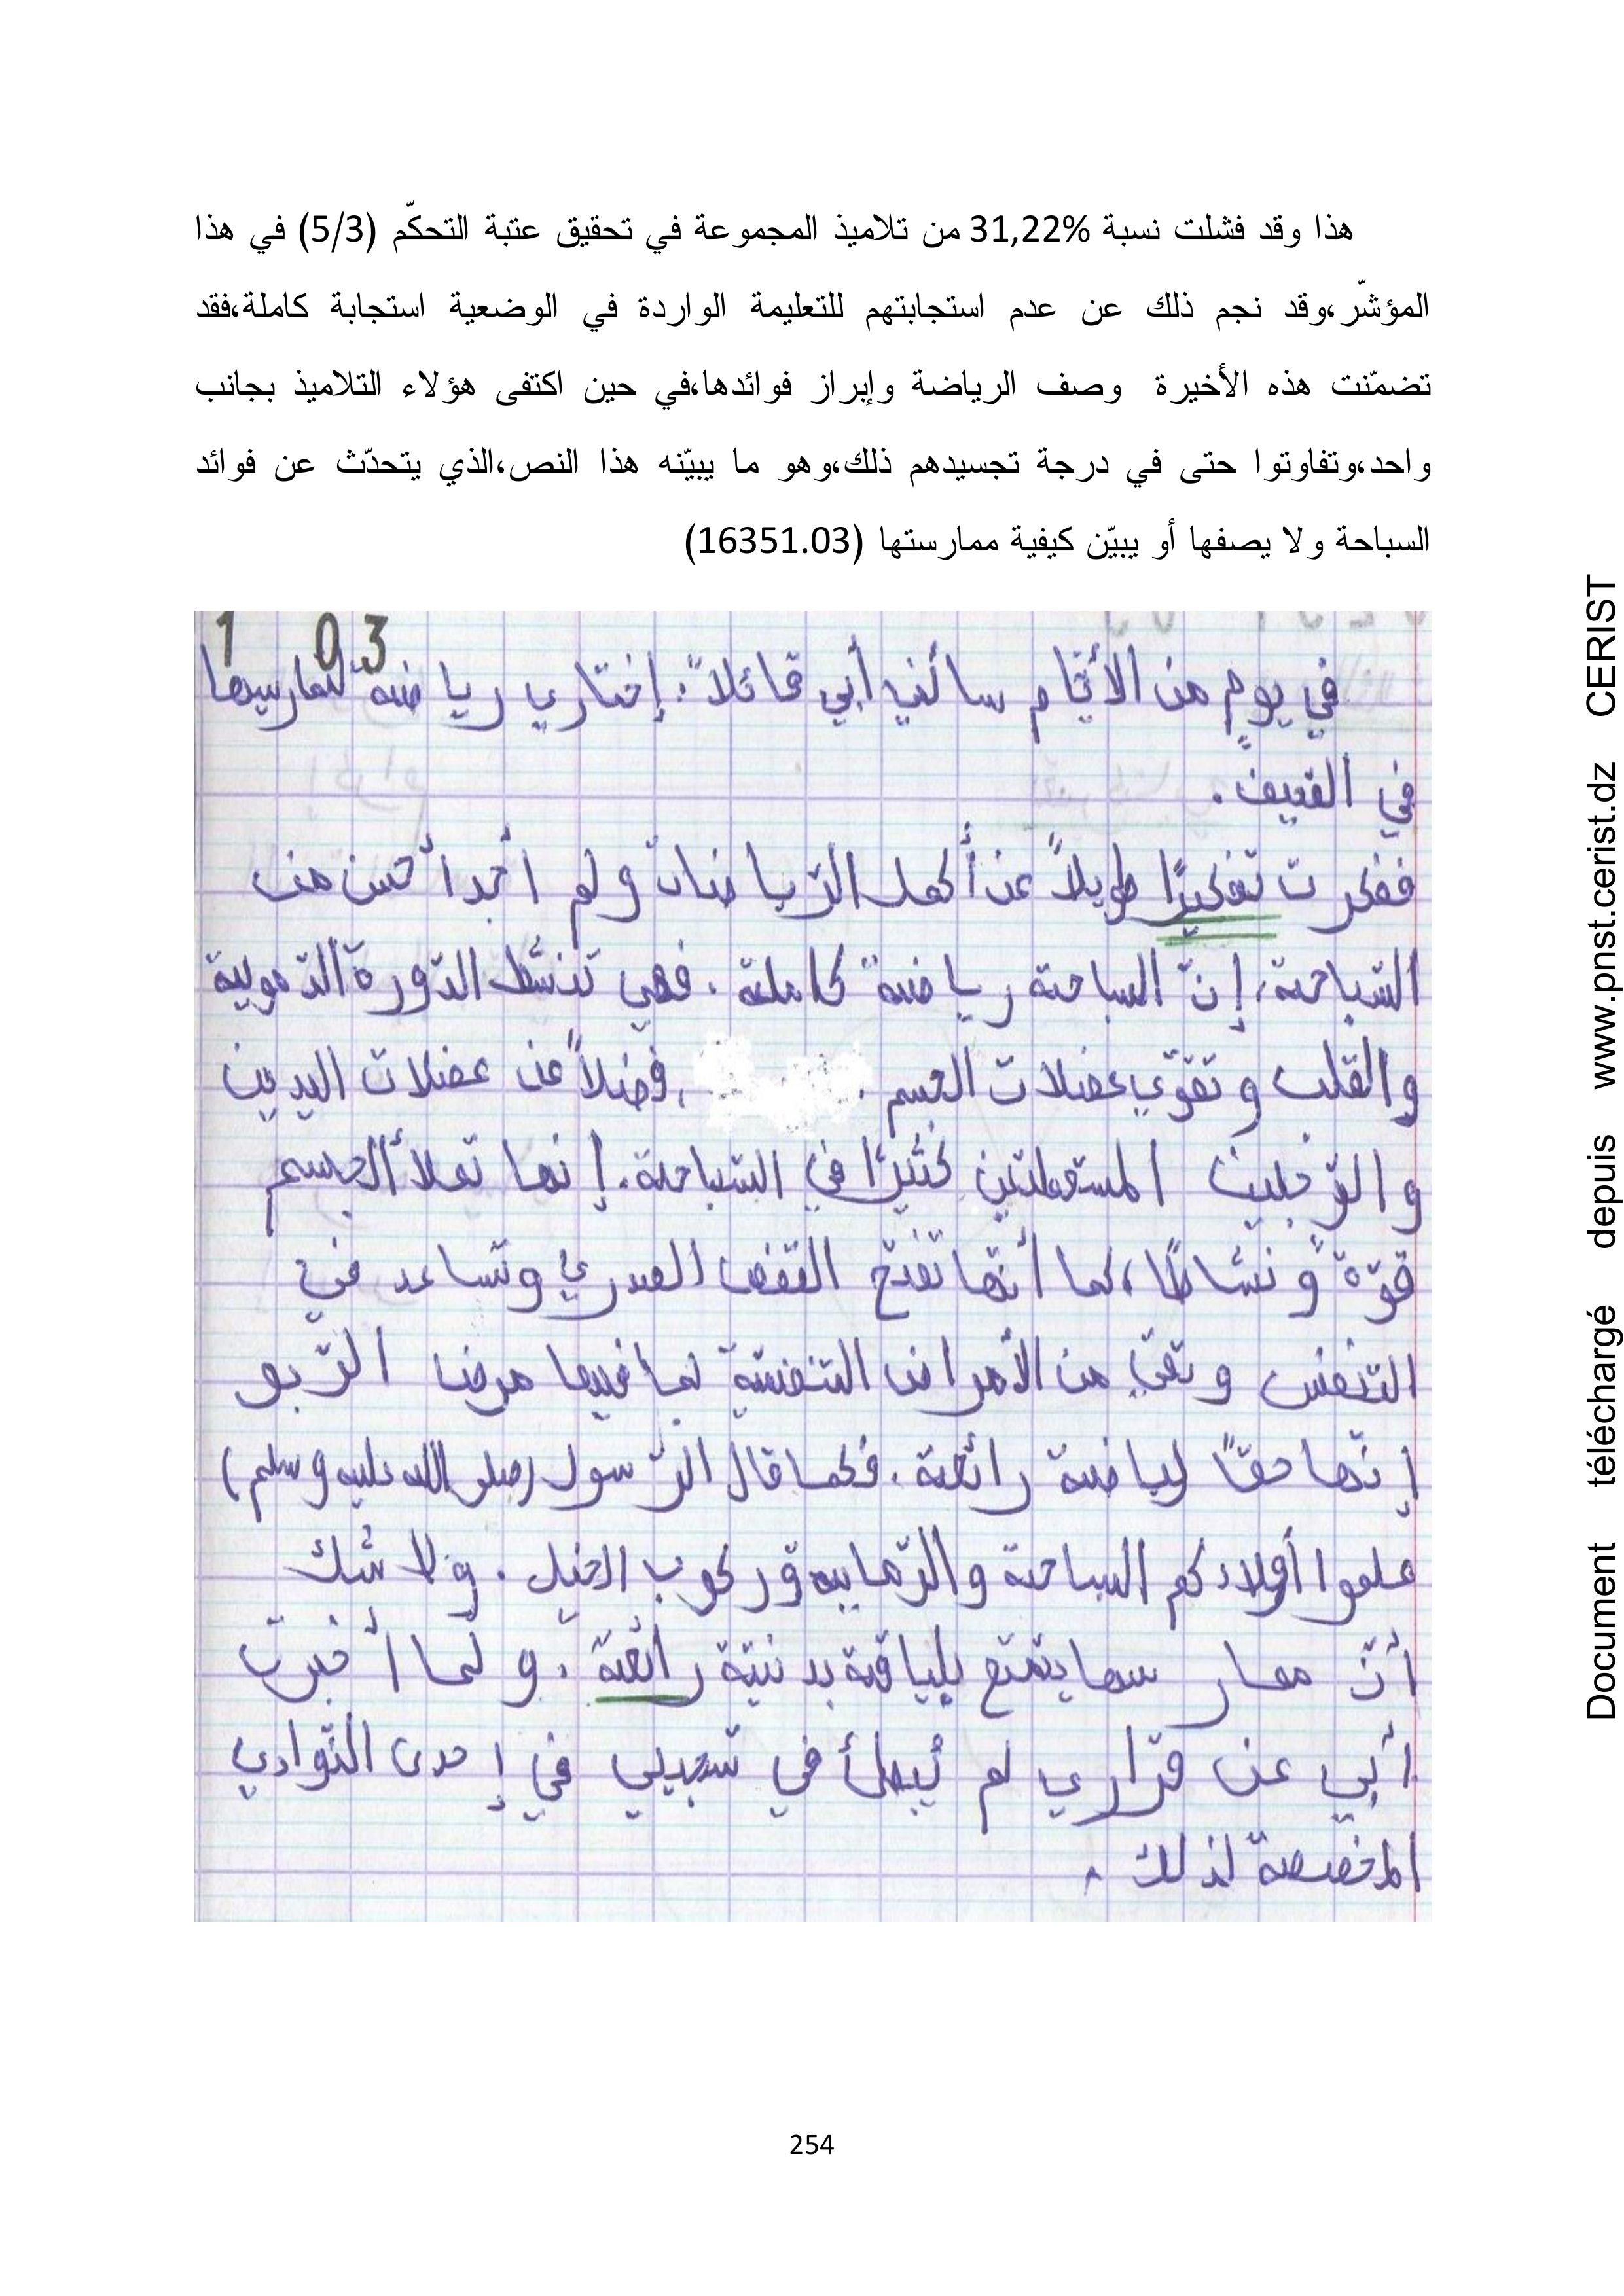 هذا وقد فشلت نسبة %31,22 من تلاميذ المجموعة في تحقيق عتبة التحكّم (5/3) في هذا
المؤشّر،وقد نجم ذلك عن عدم استجابتهم للتعليمة الواردة في الوضعية استجابة كاملة،فقد
تضمّنت هذه الأخيرة وصف الرياضة وإبراز فوائدها،في حين اكتفى هؤلاء التلاميذ بجانب
واحد،وتفاوتوا حتى في درجة تجسيدهم ذلك،وهو ما يبيّنه هذا النص،الذي يتحدّث عن فوائد
السباحة ولا يصفها أو يبيّن كيفية ممارستها (16351.03)
1 03
في يومٍ من الأيّام سألني أبي قائلاً: إختاري رياضة لتمارسيها
في الصيف.
ففكرت تفكيرًا طويلاً عن أكمل الرّياضات ولم أجد أحسن من
السّباحة، إنّ السباحة رياضة كاملة. فهي تنشّط الدّورة الدّموية
والقلب وتقوّي عضلات الجسم. ،فضلاً عن عضلات اليدين
والرّجلين المستعملتين كثيرًا في السّباحة. إنها تملأ الجسم
قوّة ونشاطًا، كما أنّها تفتح القفص الصدري وتساعد في
التنفس وتقي من الأمراض التنفسيّة بما فيها مرض الرّبو
إنّها حقًّا لرياضة رائعة. فكما قال الرّسول (صلى الله عليه وسلم)
علموا أولادكم السباحة والرّماية وركوب الخيل. ولا شك
أنّ ممارسها يتمتع بلياقة بدنيّة رائعة. ولما أخبرت
أبي عن قراري لم يبطأ في تسجيلي في إحدى النّوادي
المخصصة لذلك.
254
Document téléchargé depuis www.pnst.cerist.dz CERIST